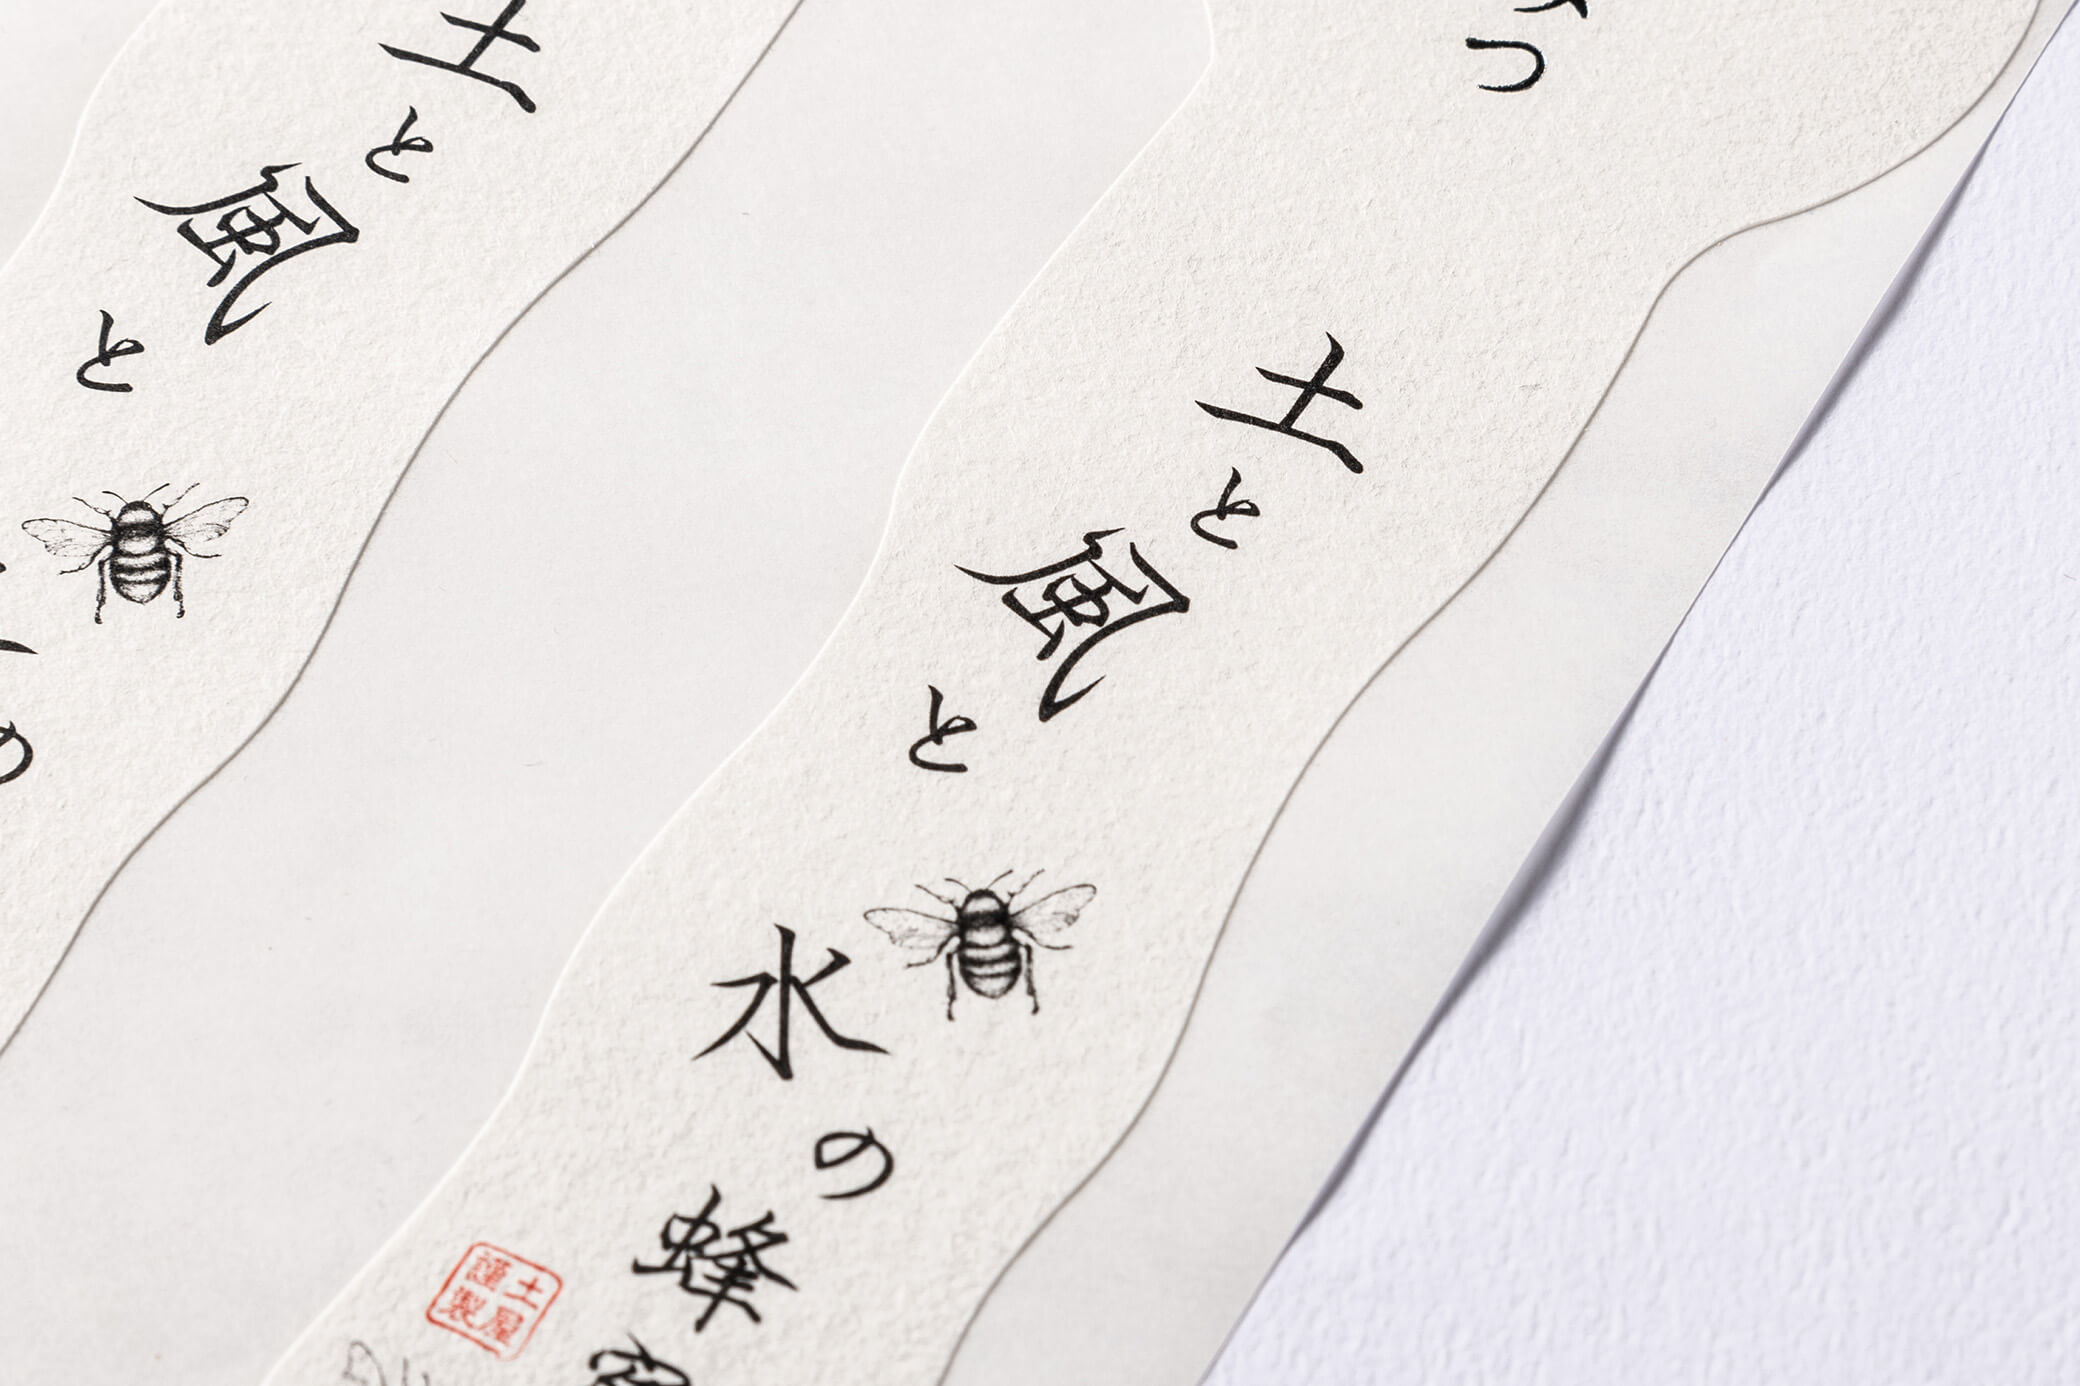 つ
土と風と
水の蜂
土屋
謹製
土と風と
の